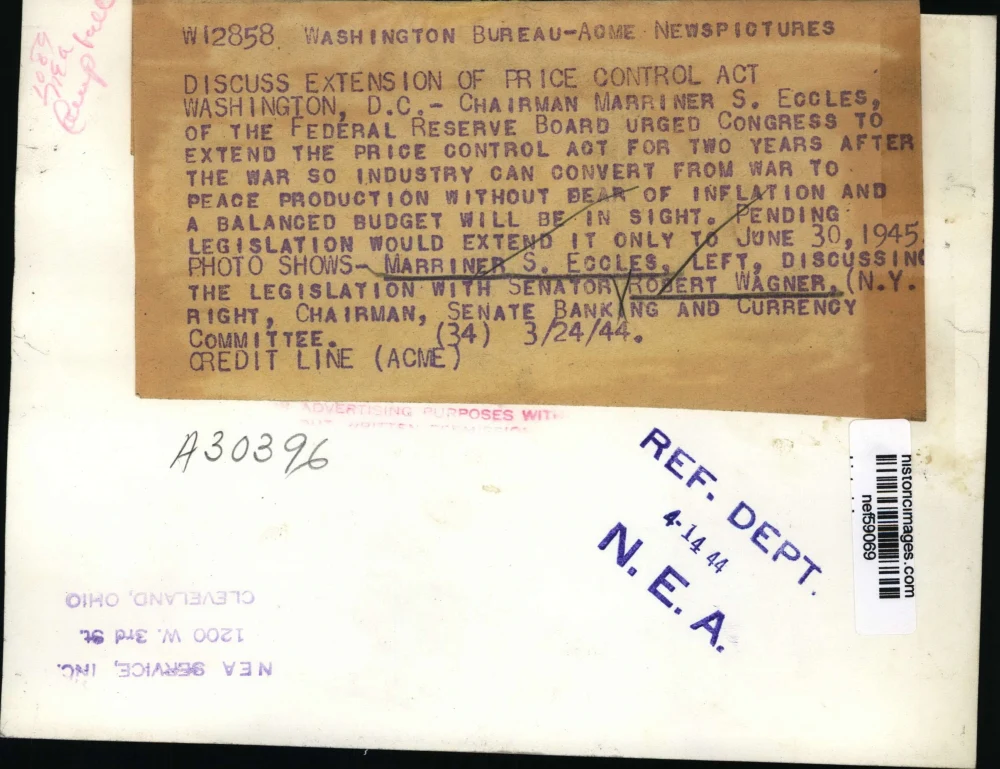 W12858 WASHINGTON BUREAU-ACME NEWSPICTURES
DISCUSS EXTENSION OF PRICE CONTROL ACT
WASHINGTON, D.C.- CHAIRMAN MARRINER S. ECCLES,
OF THE FEDERAL RESERVE BOARD URGED CONGRESS TO
EXTEND THE PRICE CONTROL ACT FOR TWO YEARS AFTER
THE WAR SO INDUSTRY CAN CONVERT FROM WAR TO
PEACE PRODUCTION WITHOUT DEAR OF INFLATION AND
A BALANCED BUDGET WILL BE IN SIGHT. PENDING
LEGISLATION WOULD EXTEND IT ONLY TO JUNE 30, 1945.
PHOTO SHOWS- MARRINER S. ECCLES, LEFT, DISCUSSING
THE LEGISLATION WITH SENATOR ROBERT WAGNER, (N.Y.
RIGHT, CHAIRMAN, SENATE BANKING AND CURRENCY
COMMITTEE. (34) 3/24/44.
CREDIT LINE (ACME)
ADVERTISING PURPOSES WITH
A30396
REF. DEPT.
4-14 44
N. E. A.
historicimages.com
nef59069
NEA SERVICE, INC.
1200 W. 3rd St.
CLEVELAND, OHIO